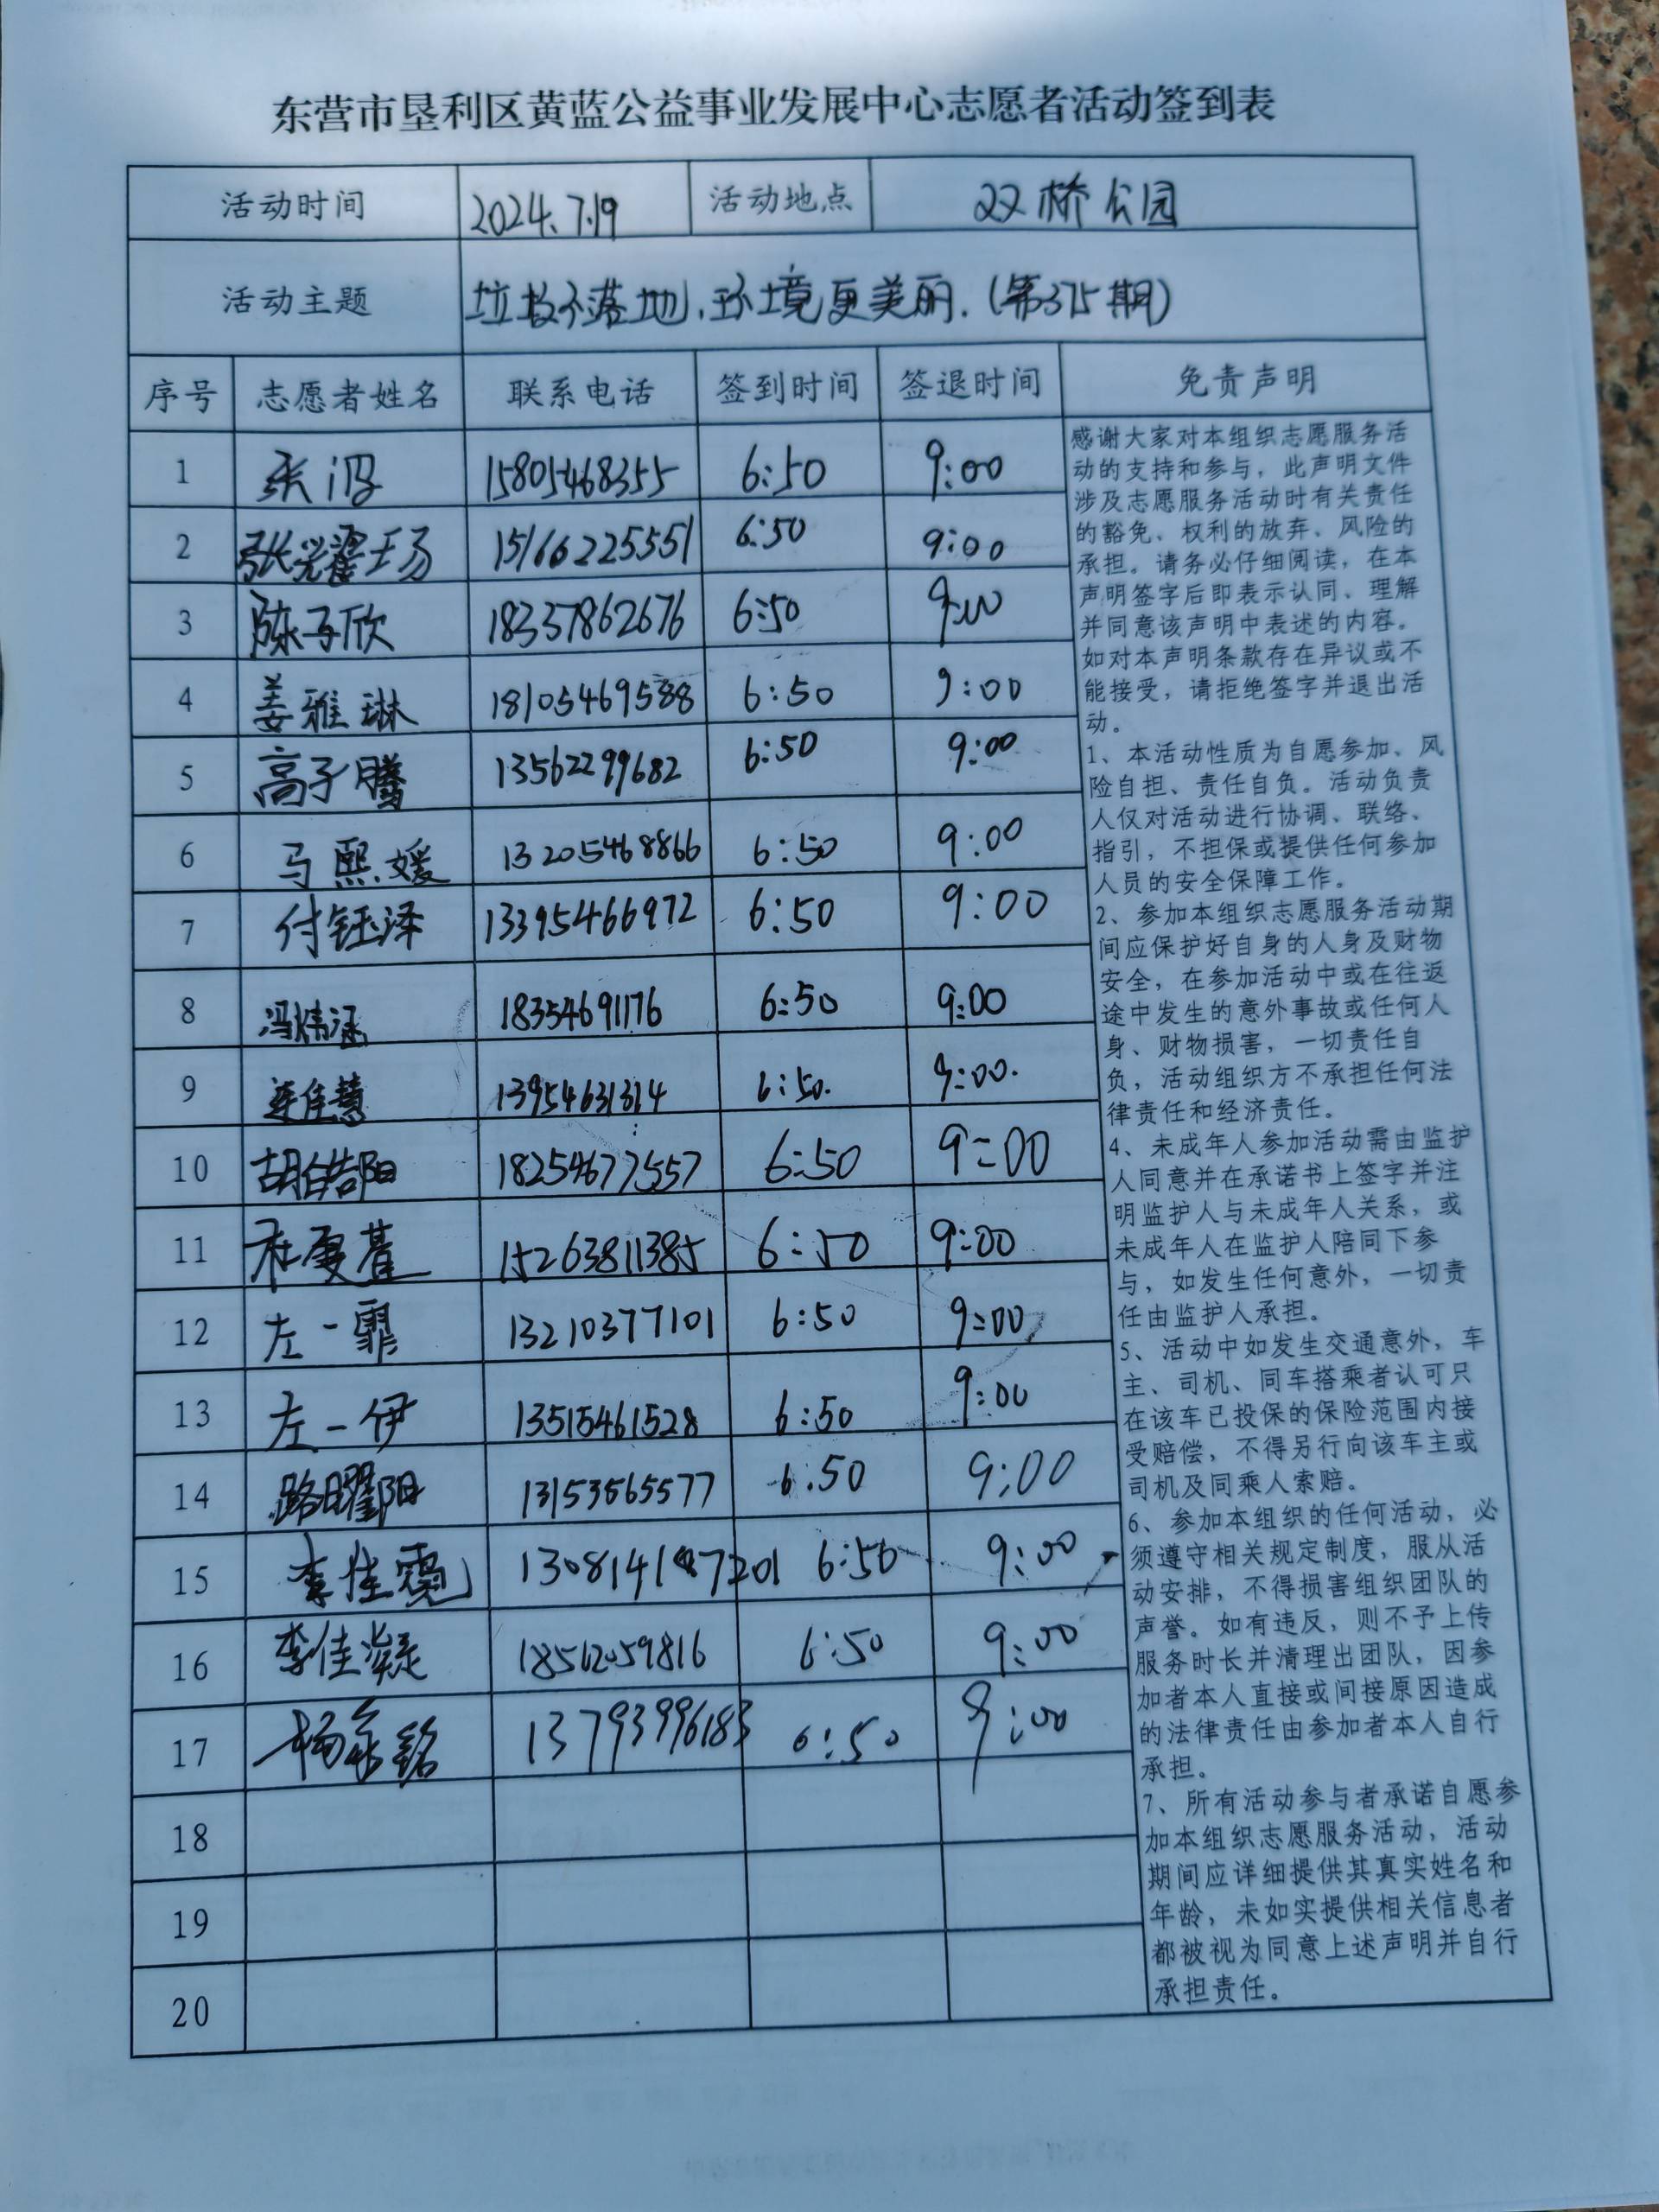 东营市垦利区黄蓝公益事业发展中心志愿者活动签到表
活动时间 2024.7.19 活动地点 双桥公园
活动主题 垃圾不落地,环境更美丽.(第375期)
序号 志愿者姓名 联系电话 签到时间 签退时间 免责声明
1 张 15805468355 6:50 9:00
2 张光耀 王 15166225551 6:50 9:00
3 陈子欣 18337862676 6:50 9:00
4 姜雅琳 18105469588 6:50 9:00
5 高子腾 13562299682 6:50 9:00
6 马熙媛 13205468866 6:50 9:00
7 付钰泽 13395466972 6:50 9:00
8 冯炜涵 18354691176 6:50 9:00
9 连佳慧 13954631314 6:50. 9:00.
10 胡皓阳 18254677557 6:50 9:00
11 15263811385 6:50 9:00
12 左一霏 13210377101 6:50 9:00
13 左一伊 13515461528 6:50 9:00
14 路曜阳 13153565577 6:50 9:00
15 李佳霓 6:50 9:00
16 李佳凝 18562059816 6:50 9:00
17 杨 铭 13793996183 6:50 9:00
18
19
20
感谢大家对本组织志愿服务活
动的支持和参与,此声明文件
涉及志愿服务活动时有关责任
的豁免、权利的放弃、风险的
承担。请务必仔细阅读,在本
声明签字后即表示认同、理解
并同意该声明中表述的内容。
如对本声明条款存在异议或不
能接受,请拒绝签字并退出活
动。
1、本活动性质为自愿参加、风
险自担、责任自负。活动负责
人仅对活动进行协调、联络、
指引,不担保或提供任何参加
人员的安全保障工作。
2、参加本组织志愿服务活动期
间应保护好自身的人身及财物
安全,在参加活动中或在往返
途中发生的意外事故或任何人
身、财物损害,一切责任自
负,活动组织方不承担任何法
律责任和经济责任。
4、未成年人参加活动需由监护
人同意并在承诺书上签字并注
明监护人与未成年人关系,或
未成年人在监护人陪同下参
与,如发生任何意外,一切责
任由监护人承担。
5、活动中如发生交通意外,车
主、司机、同车搭乘者认可只
在该车已投保的保险范围内接
受赔偿,不得另行向该车主或
司机及同乘人索赔。
6、参加本组织的任何活动,必
须遵守相关规定制度,服从活
动安排,不得损害组织团队的
声誉。如有违反,则不予上传
服务时长并清理出团队,因参
加者本人直接或间接原因造成
的法律责任由参加者本人自行
承担。
7、所有活动参与者承诺自愿参
加本组织志愿服务活动,活动
期间应详细提供其真实姓名和
年龄,未如实提供相关信息者
都被视为同意上述声明并自行
承担责任。